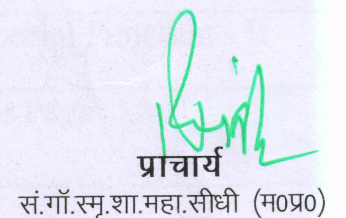 प्राचार्य
सं.गॉ.स्मृ.शा.महा.सीधी (म0प्र0)